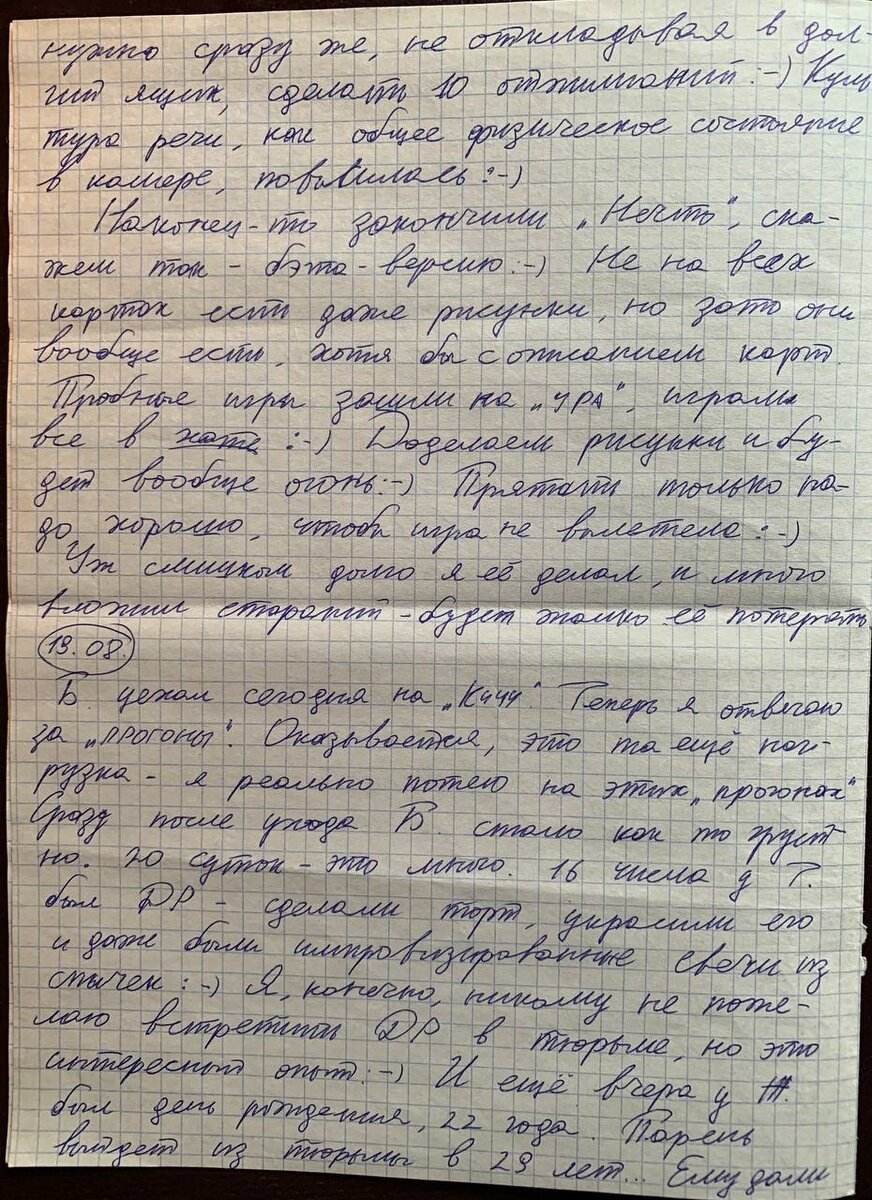 нужно сразу же, не откладывая в дол-
гий ящик, сделать 10 отжиманий :-) Куль
тура речи, как общее физическое состояние
в камере, повысилась :-)
Наконец-то закончили „Нечто", ска-
жем так - бэта-версию :-) Не на всех
картах есть даже рисунки, но зато они
вообще есть, хотя бы с описанием карт.
Пробные игры зашли на „УРА", играли
все в хате :-) Доделаем рисунки и бу-
дет вообще огонь :-) Прятать только на-
до хорошо, чтобы игра не вылетела :-)
Уж слишком долго я её делал, и много
вложил стараний - будет жалко её потерять
19.08.
Б. уехал сегодня на „Кичу". Теперь я отвечаю
за „прогоны". Оказывается, это та ещё наг-
рузка - я реально потею на этих „прогонах"
Сразу после ухода Б. стало как то груст
но. 20 суток - это много. 16 числа у Т.
был ДР - сделали торт, украсили его
и даже были импровизированные свечи из
спичек :-) Я, конечно, никому не поже-
лаю встретить ДР в тюрьме, но это
интересный опыт :-) И ещё вчера у Ж.
был день рождения, 22 года. Парень
выйдет из тюрьмы в 29 лет... Ему дали